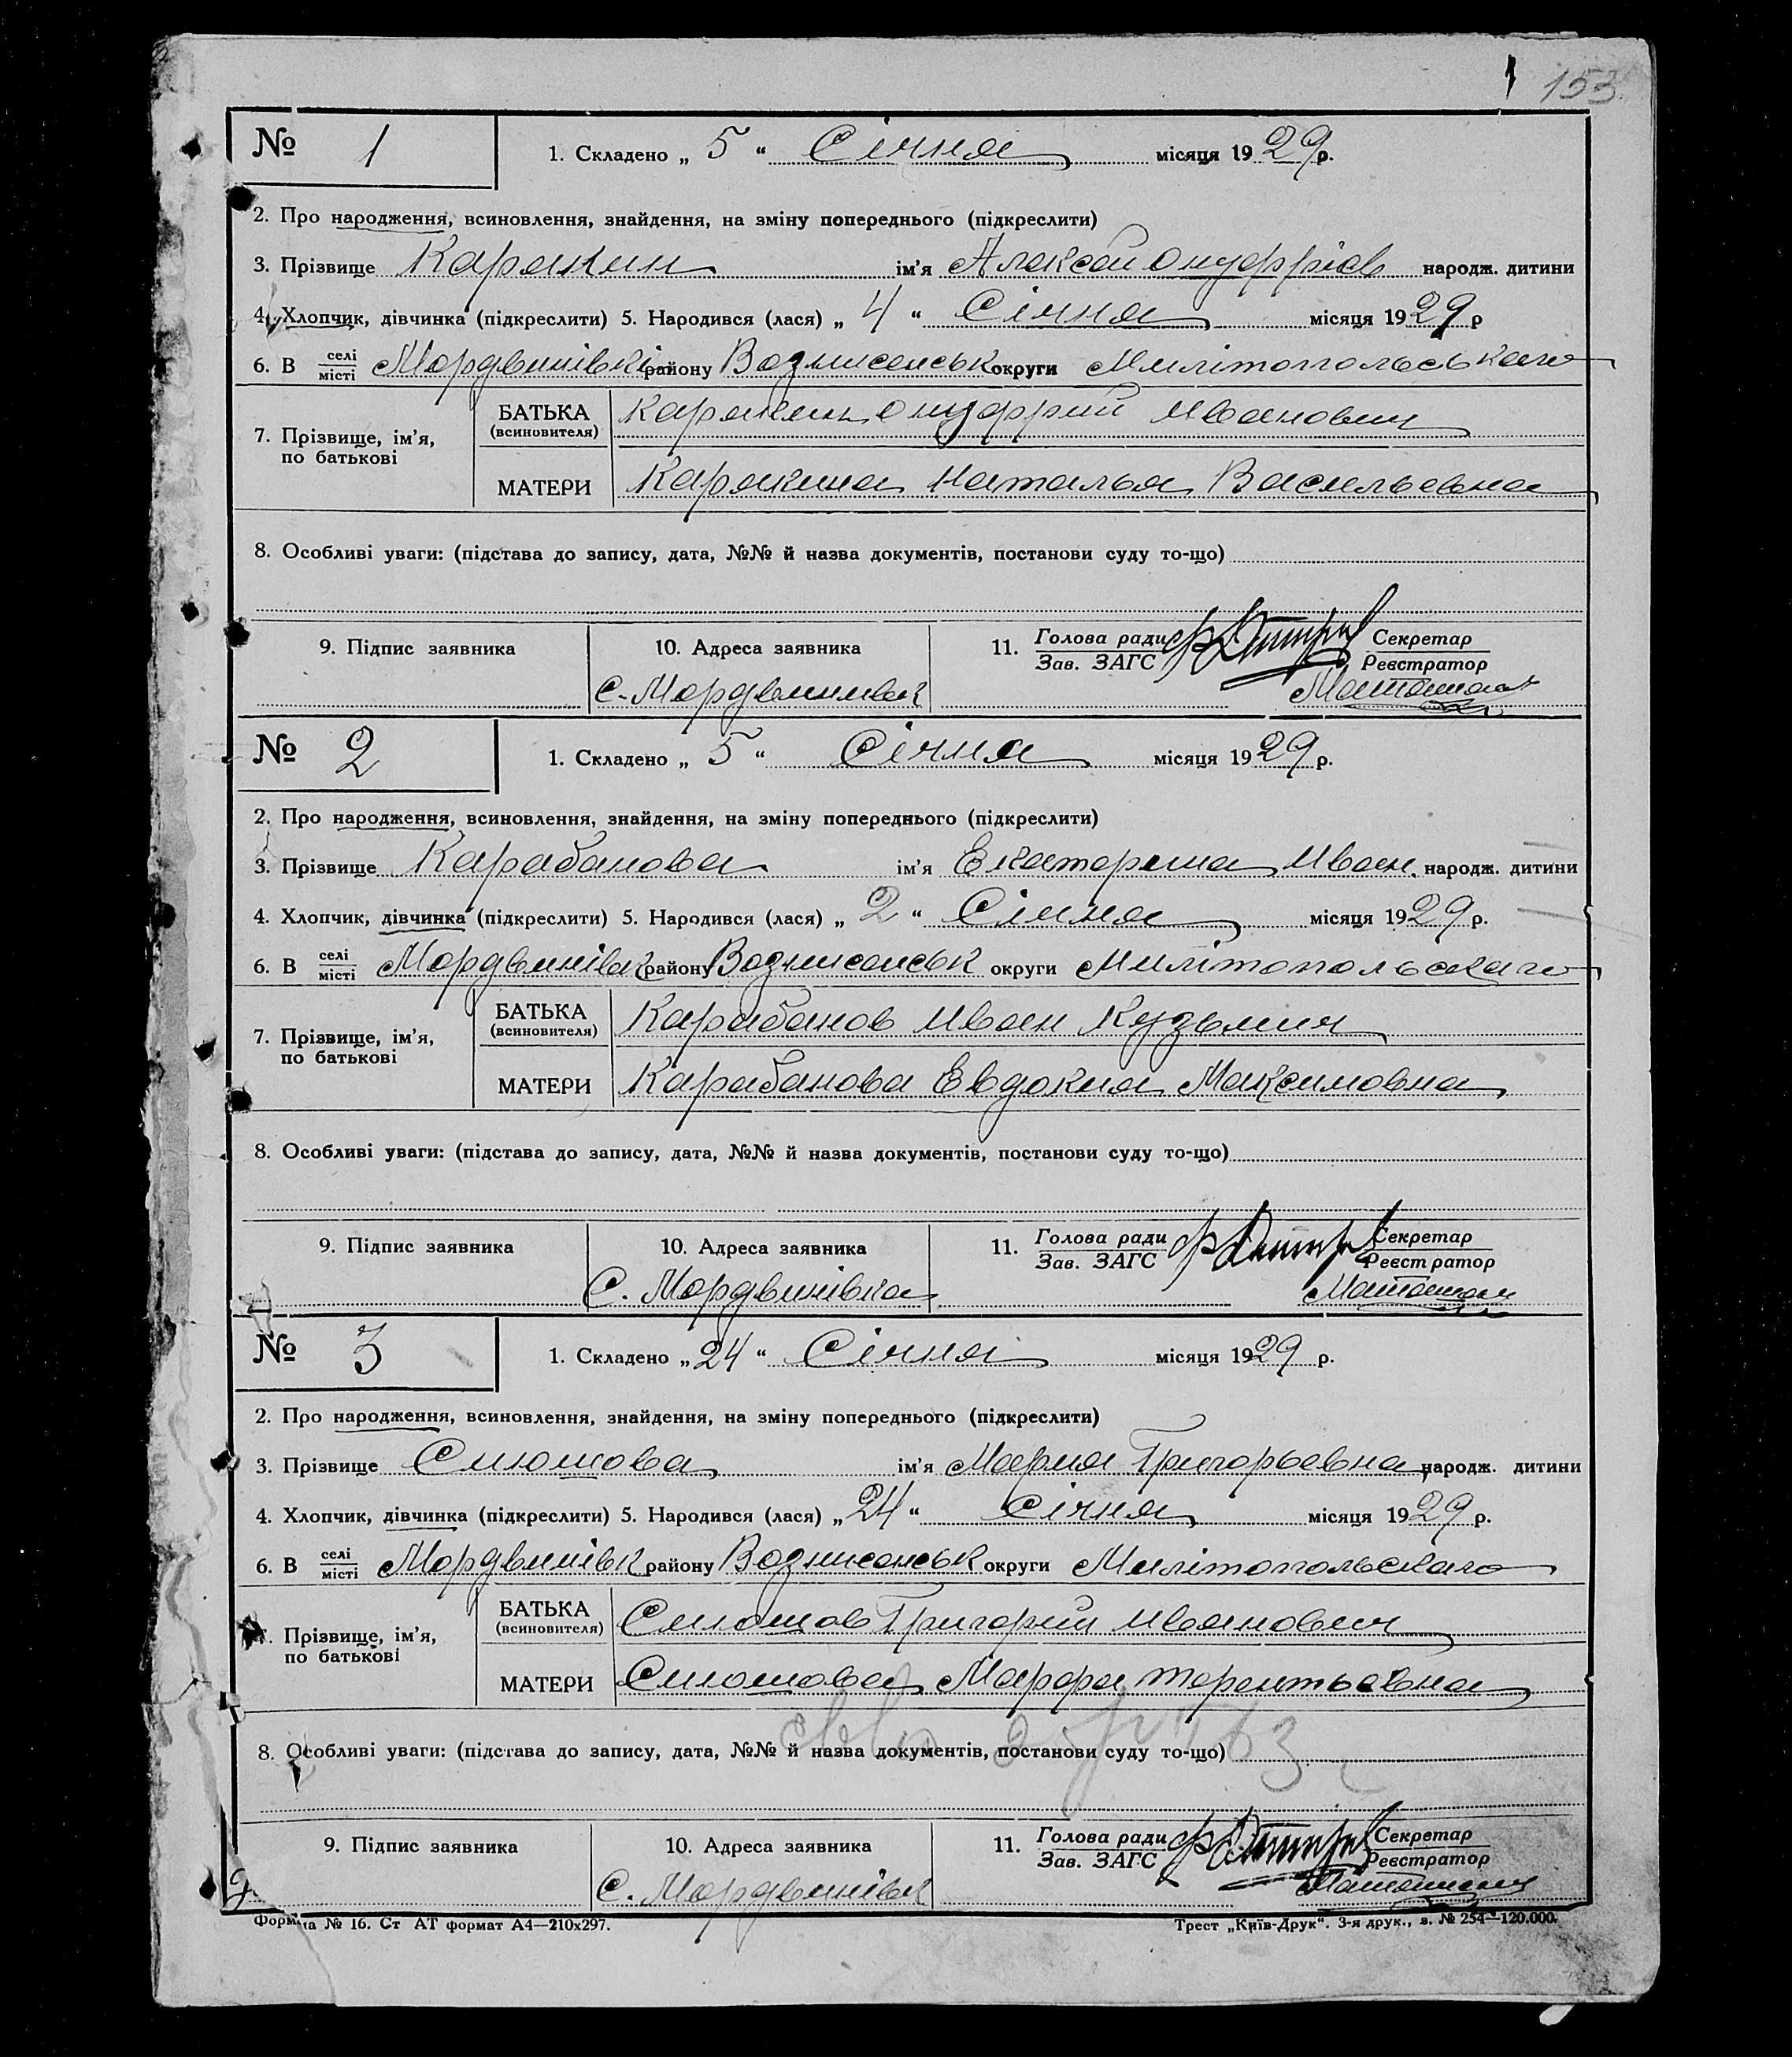 1 153
№ 1 1. Складено „ 5 “ Січня місяця 1929р.
2. Про народження, всиновлення, знайдення, на зміну попереднього (підкреслити)
3. Прізвище Карякин ім'я Алексей Онуфріев народж. дитини
4. Хлопчик, дівчинка (підкреслити) 5. Народився (лася) „ 4 “ Січня місяця 1929 р
6. В селі/місті Мордвинівкі району Вознисенськ округи Милітопольськаго
7. Прізвище, ім'я, по батькові БАТЬКА (всиновителя) Карякин Онуфрий Иванович
МАТЕРИ Карякина Наталья Васильевна
8. Особливі уваги: (підстава до запису, дата, №№ й назва документів, постанови суду то-що)
9. Підпис заявника 10. Адреса заявника 11. Голова ради/Зав. ЗАГС Секретар/Реєстратор
С. Мордвинивк
№ 2 1. Складено „ 5 “ Січня місяця 1929 р.
2. Про народження, всиновлення, знайдення, на зміну попереднього (підкреслити)
3. Прізвище Карабанова ім'я Екатерина Иван. народж. дитини
4. Хлопчик, дівчинка (підкреслити) 5. Народився (лася) „ 2 “ Січня місяця 1929 р.
6. В селі/місті Мордвинівк району Вознисенськ округи Милітопольскаго
7. Прізвище, ім'я, по батькові БАТЬКА (всиновителя) Карабанов Иван Кузьмич
МАТЕРИ Карабанова Евдокия Максимовна
8. Особливі уваги: (підстава до запису, дата, №№ й назва документів, постанови суду то-що)
9. Підпис заявника 10. Адреса заявника 11. Голова ради/Зав. ЗАГС Секретар/Реєстратор
С. Мордвинівка
№ 3 1. Складено „ 24 “ Січня місяця 1929 р.
2. Про народження, всиновлення, знайдення, на зміну попереднього (підкреслити)
3. Прізвище ім'я Мария Григорьевна народж. дитини
4. Хлопчик, дівчинка (підкреслити) 5. Народився (лася) „ 24 “ Січня місяця 1929 р.
6. В селі/місті Мордвинівк району Вознисенськ округи Милітопольскаго
7. Прізвище, ім'я, по батькові БАТЬКА (всиновителя) Григорий Иванович
МАТЕРИ Марфа Терентьевна
8. Особливі уваги: (підстава до запису, дата, №№ й назва документів, постанови суду то-що)
9. Підпис заявника 10. Адреса заявника 11. Голова ради/Зав. ЗАГС Секретар/Реєстратор
С. Мордвинівк
Форма № 16. Ст АТ формат А4—210х297. Трест „Київ-Друк“. 3-я друк., з. № 254—120.000.